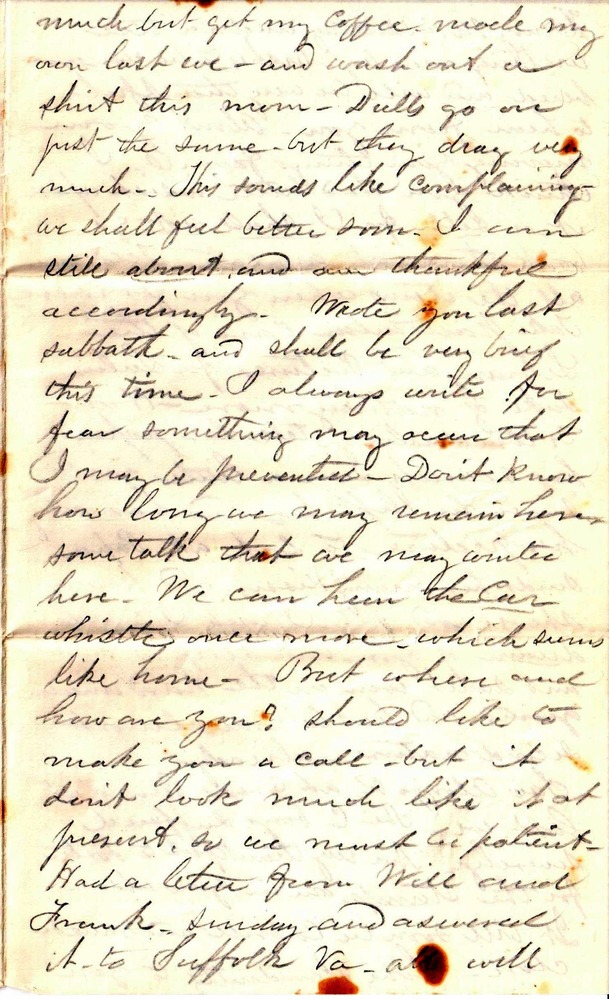 much but get my Coffee. made my
own last eve - and wash out a
shirt this morn - Drills go on
just the same - but they drag very
much -. This sounds like complaining -
we shall feel better soon - I am
still about, and am thankful
accordingly - Wrote you last
sabbath - and shall be very brief
this time - I always write for
fear something may occur that
I may be prevented - Don't know
how long we may remain here,
some talk that we may winter
here - We can hear the Car
whistle once more - which seems
like home - But where and
how are you? should like to
make you a call - but it
don't look much like it at
present, so we must be patient -
Had a letter from Will and
Frank - sunday - and aswered
it - to Suffolk Va - all well